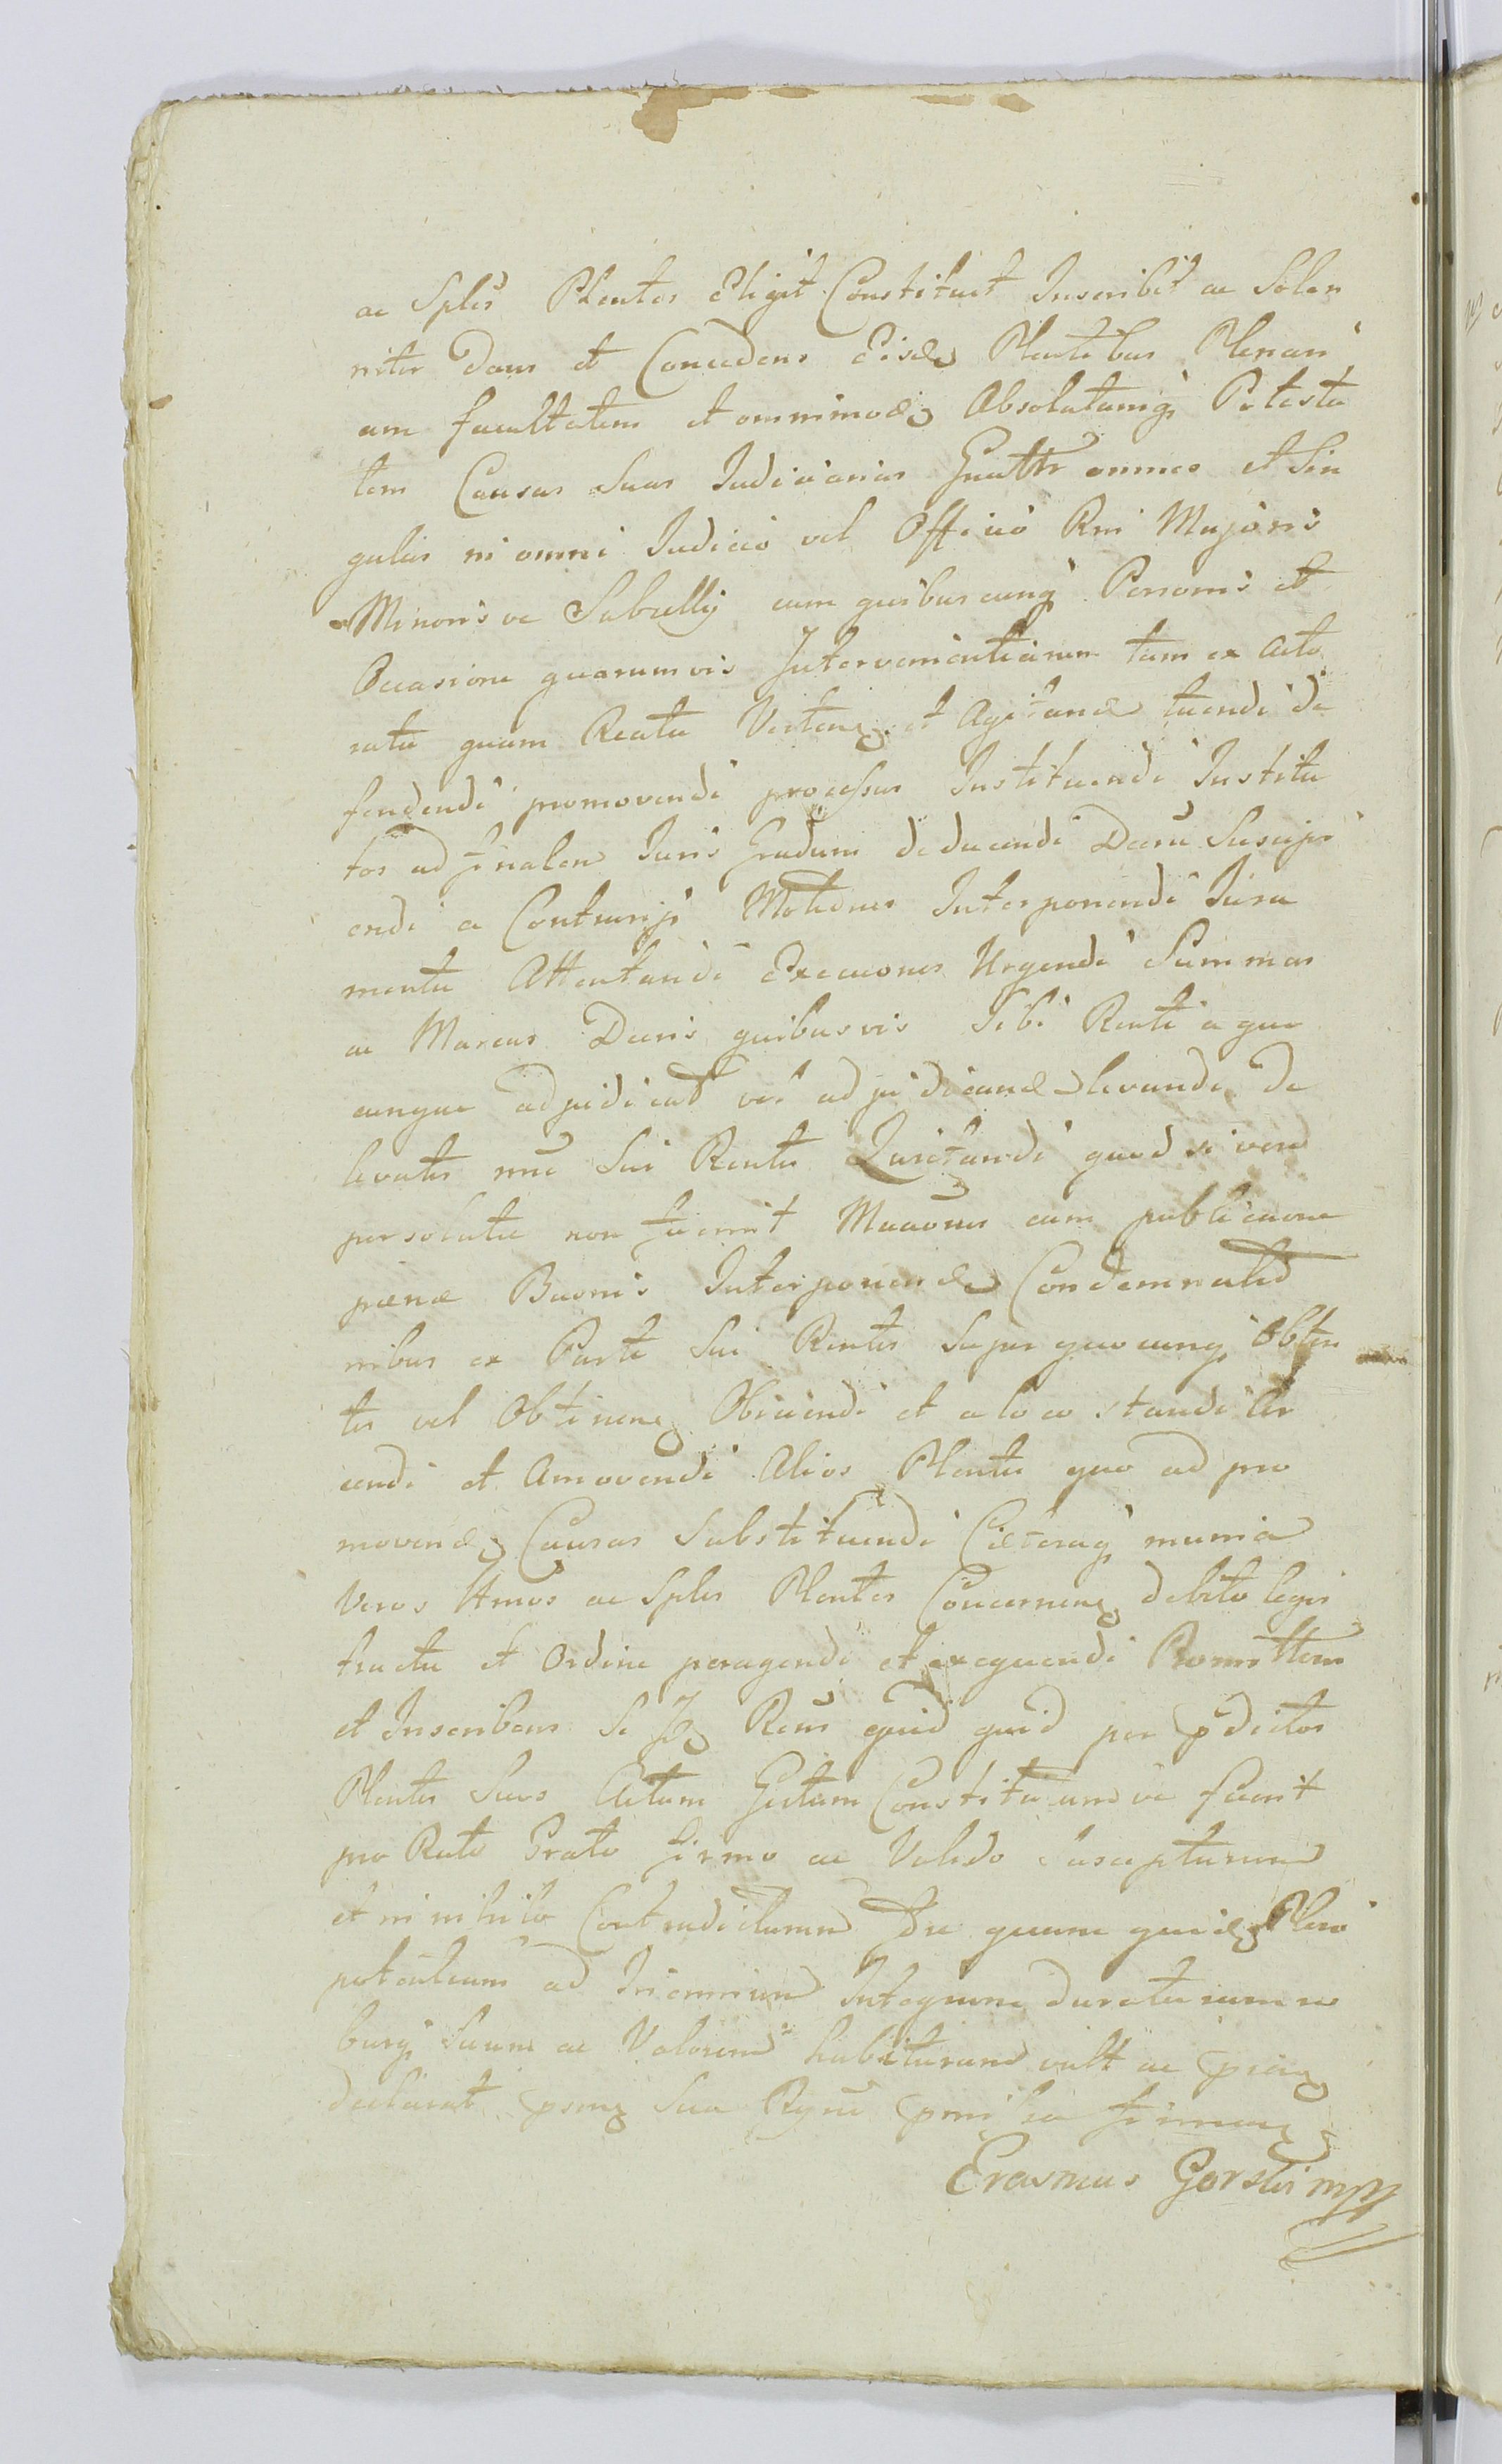 ac Sples Plentes Eligit Constituit Inscribit ac Solen
niter Dans et Concedens Eisdē Plentibus Plenari
am facultatem et ommimodā Absolutamq Potesta
tem Causas Suas Judiciarias Gnaltr omnes et Sin
gulas in omni Judicio vel Officio Rni Majoris
Minoris ve Subsellij cum quibuscunq Personis et
Occasione quarumvis Intervenientiarum tam ex Acto
ratu quam Reatu Verten et Agitand tuendi de
fendendi promovendi processus Instituendi Institu
tos ad finalem Juris Gradum deducendi Decrū Suscipi
endi a Contrarijs Motiones Interponendi Jura
menta Attentandi Execuones Urgendi Summas
ac Marcas Decris quibusvis Sibi Rcnti a quo
cunque adjudicat vel adjudicand levandi de
levatis nne Sui Rcntis Quietandi quod si vero
persolutae non fuerint cum publicuone
poenae Baonis Interponend Condemnatio
nibus ex Parte Sui Rcntis super quocunq Obten
tis vel Obtinen Obiiciendi et a loco standi Ar
cendi et Amovendi Alios Plentes quo ad pro
movend Causas Substituendi Cæteraq munia
Veros Attnos ac Sples Plentes Concernen debito legis
tractu et Ordine peragendi et exequendi Promittens
et Inscribens Se Rcns quid quid per pdictos
Plentes Suos Actum Gestum Constitutum ve fuerit
pro Rato Grato firmo ac Valido Suscepturum
et in nihilo Contradicturum quam quid Pleni
potentiam ad Triennium Integrum duraturam ro
burq Suum ac Valorem habituram vult ac
declarat Sua
Erasmus Gorski mpp